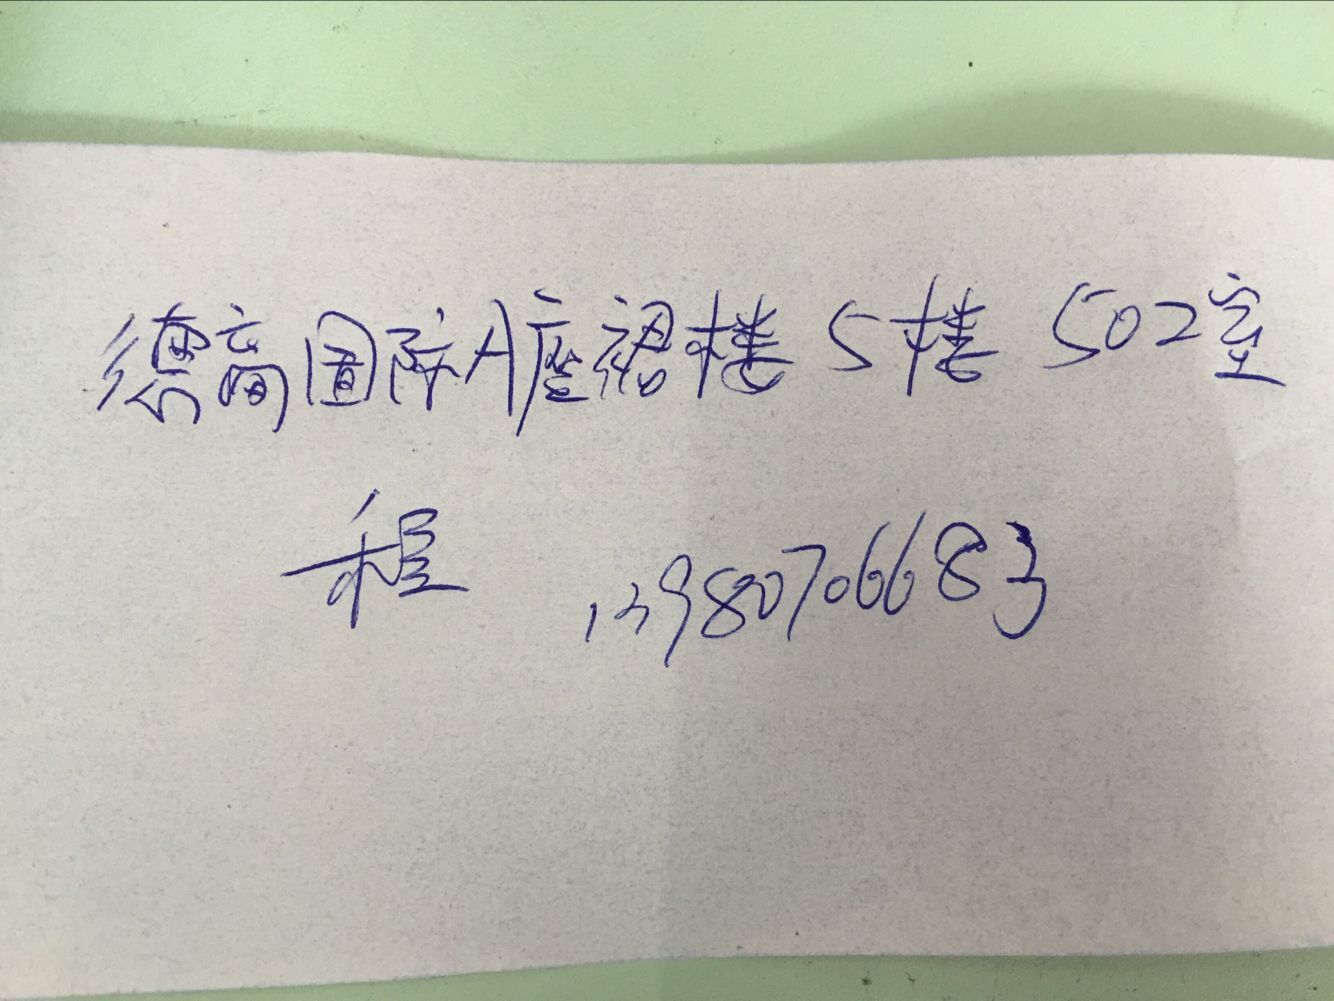 德商国际A座裙楼5楼 502室
程 13980706683